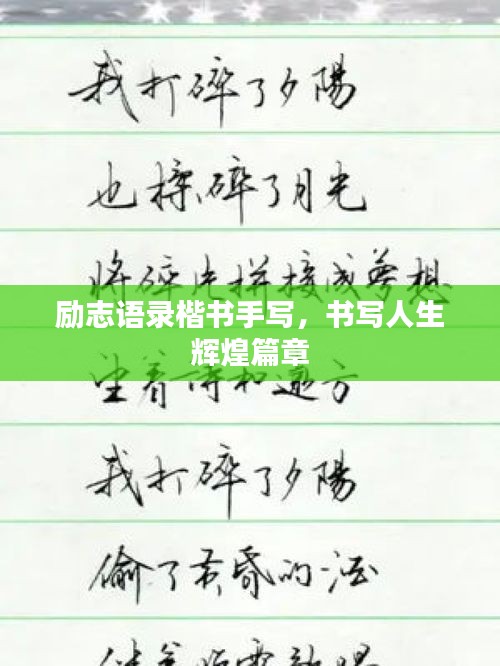 我打碎了夕陽
也揉碎了月光
将碎片拼接成夢想
励志语录楷书手写，书写人生
辉煌篇章
着诗和遠方
我打碎了夕陽
偷了黄昏的酒